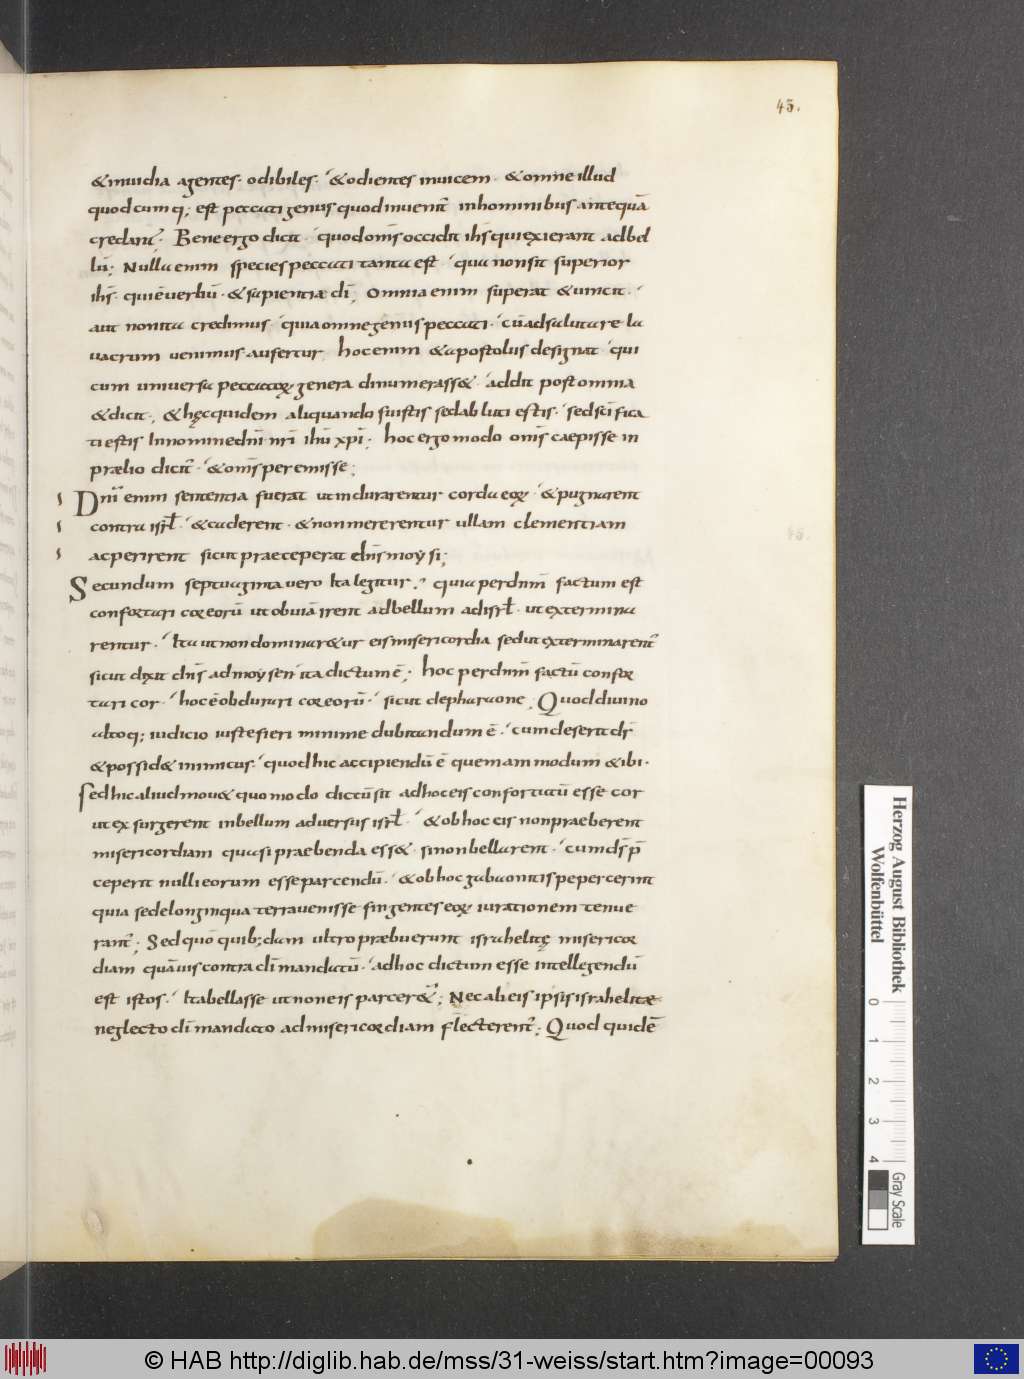 45.
&inuidia agentes· odibiles· &odientes inuicem· &omne illud
quodcumq; est peccati genus quod inuenit̄ inhominibus antequā
credant̄· Bene ergo dicit· quodom̄s occidit ih̄s qui exierant adbel
lū; Nulla enim species peccati tanta est· qua non sit superior
ih̄s· quiē uerbū· &sapientiæ dī; Omnia enim superat &uincit·
aut non ita credimus· quia omne genus peccati· cū adsalutare la
uacrum uenimus aufertur; hoc enim &apostolus designat· qui
cum uniuersa peccatoꝝ genera dinumerass&· addit post omnia
&dicit; &hęc quidem aliquando fuistis sed abluti estis· sed scīfica
ti estis Innomine dn̄i nr̄i ih̄u xp̄i; hoc ergo modo om̄s caepisse in
prælio dicit̄· &om̄s peremisse;
Dn̄i enim sententia fuerat ut indurarentur corda eoꝝ· &pugnarent
contra isrł· &caderent· &non mererentur ullam clementiam
ac perirent sicut praeceperat dn̄s moysi;
Secundum septuaginta uero Ita legitur· quia per dn̄m factum est
confortari cor eorū ut obuiā irent adbellum adisrł· ut extermina
rentur· Ita ut non dominar&ur eis misericordia sed ut exterminarent̄
sicut dixit dn̄s admoysen ita dictum ē; hoc per dn̄m factū confor
tari cor· hoc ē obdurari cor eorū· sicut depharaone; Quod diuino
altoq; iudicio iuste fieri minime dubitandum ē· cum deserit ds̄
&possid& inimicus· quod hic accipiendū ē quemammodum &ibi·
Sed hic aliud mou& quomodo dictū sit adhoc eis confortatū esse cor
ut exsurgerent inbellum aduersus isrł· &ob hoc eis non praeberent
misericordiam quasi praebenda ess&· si non bellarent· cum ds̄ p̄
ceperit nulli eorum esse parcendū· &ob hoc gabaonitis pepercerint
quia se de longinqua terra uenisse fingentes eoꝝ iurationem tenue
rant̄; Sed quō quib;dam ultro præbuerunt israhelitę misericor
diam quāuis contra dī mandatū· adhoc dictum esse intellegendū
est istos· Ita bellasse ut non eis parcer&̄; Nec ab eis ipsis israhelitæ
neglecto dī mandato admisericordiam flecterent̄; Quod quidē
Herzog August Bibliothek
Wolfenbüttel
0 1 2 3 4
Gray Scale
© HAB http://diglib.hab.de/mss/31-weiss/start.htm?image=00093